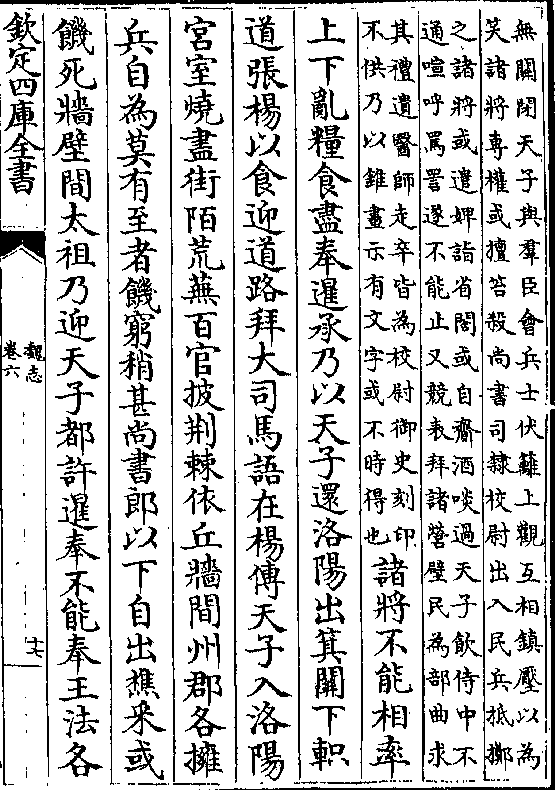 無關閉天子與羣臣會兵士伏籬上觀互相鎮壓以為
笑諸將專權或擅笞殺尚書司隸校尉出入民兵抵擲
之諸將或遣婢詣省閤或自齎酒啖過天子飲侍中不
通喧呼罵詈遂不能止又競表拜諸營壁民為部曲求
其禮遺醫師走卒皆為校尉御史刻印
不供乃以錐畫示有文字或不時得也
諸將不能相率
上下亂糧食盡奉暹承乃以天子還洛陽出箕關下軹
道張楊以食迎道路拜大司馬語在楊傳天子入洛陽
宮室燒盡街陌荒蕪百官披荆棘依丘牆間州郡各擁
兵自為莫有至者饑窮稍甚尚書郎以下自出樵采或
饑死牆壁間太祖乃迎天子都許暹奉不能奉王法各
欽定四庫全書
魏志
卷六
十六